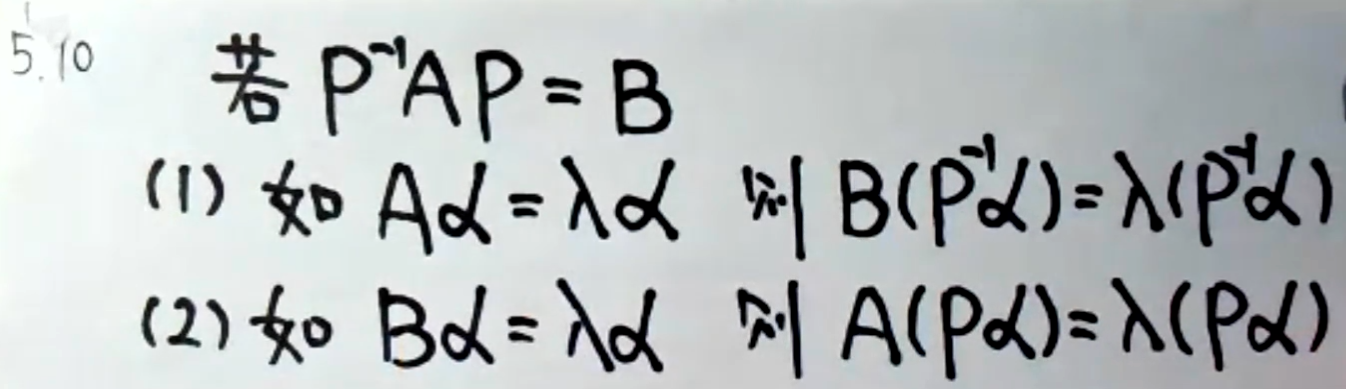 5.10 若 P⁻¹AP = B
(1) 如 Aα = λα 则 B(P⁻¹α) = λ(P⁻¹α)
(2) 如 Bα = λα 则 A(Pα) = λ(Pα)